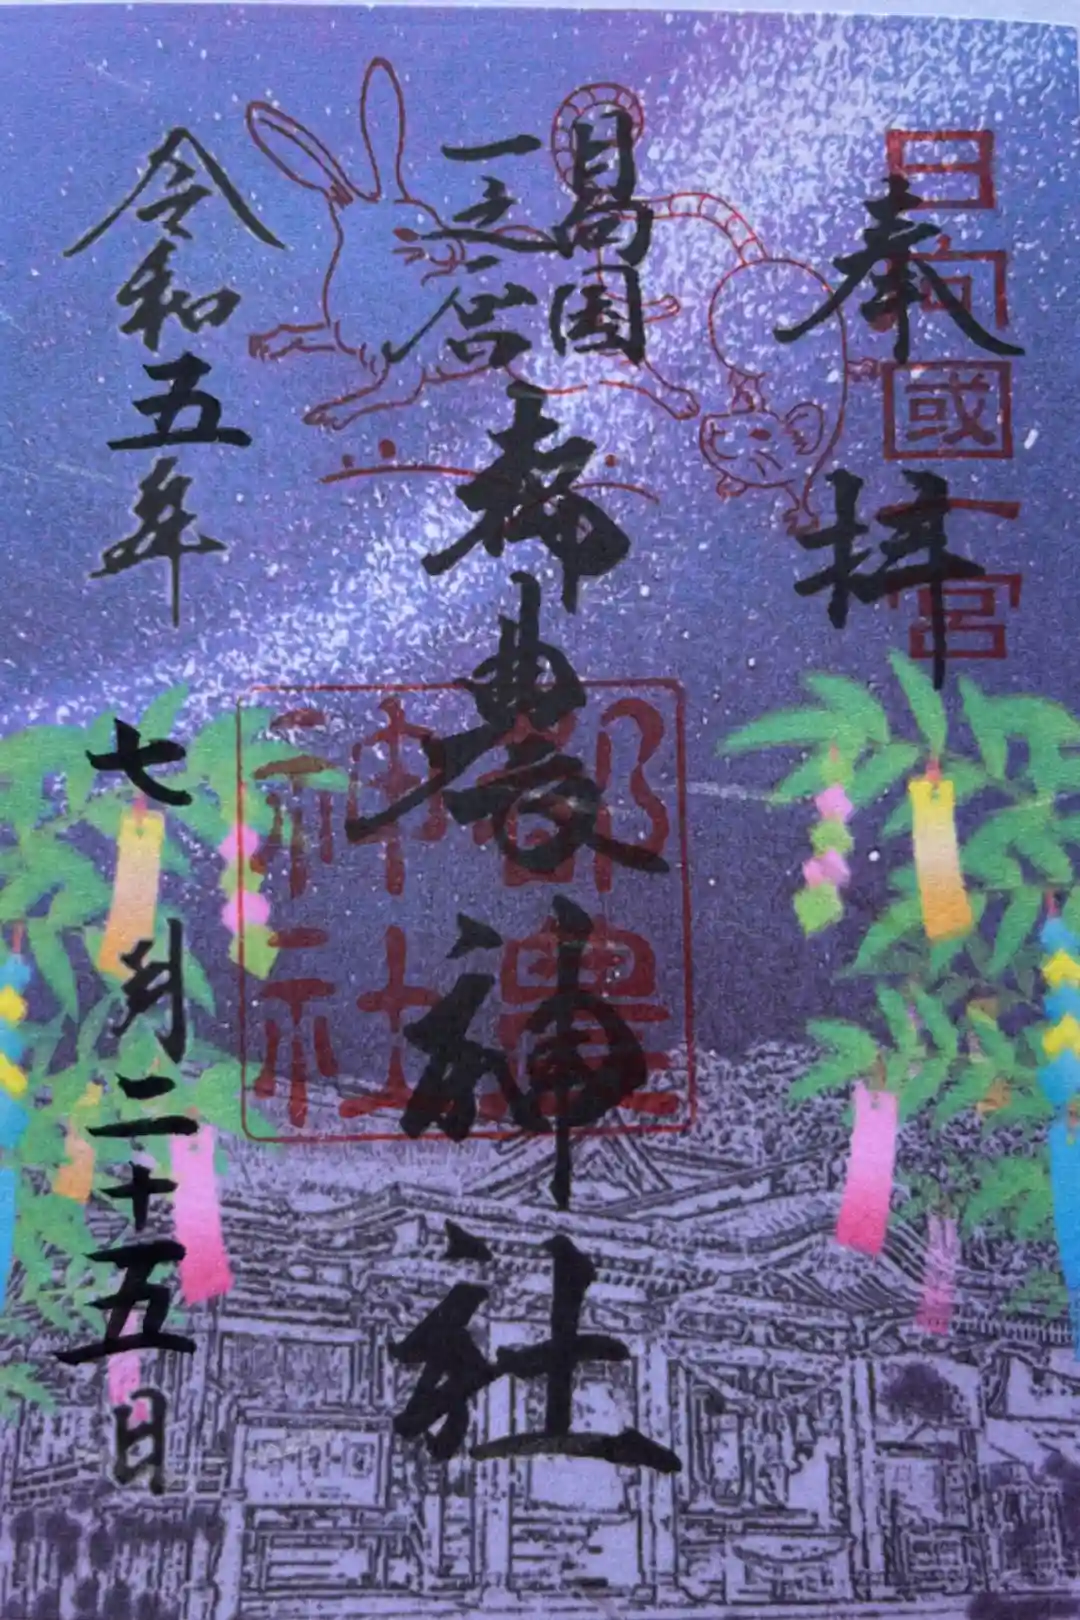 奉拝
日向國一宮
日向国
一之宮
都農神社
都農神社
令和五年
七月二十五日